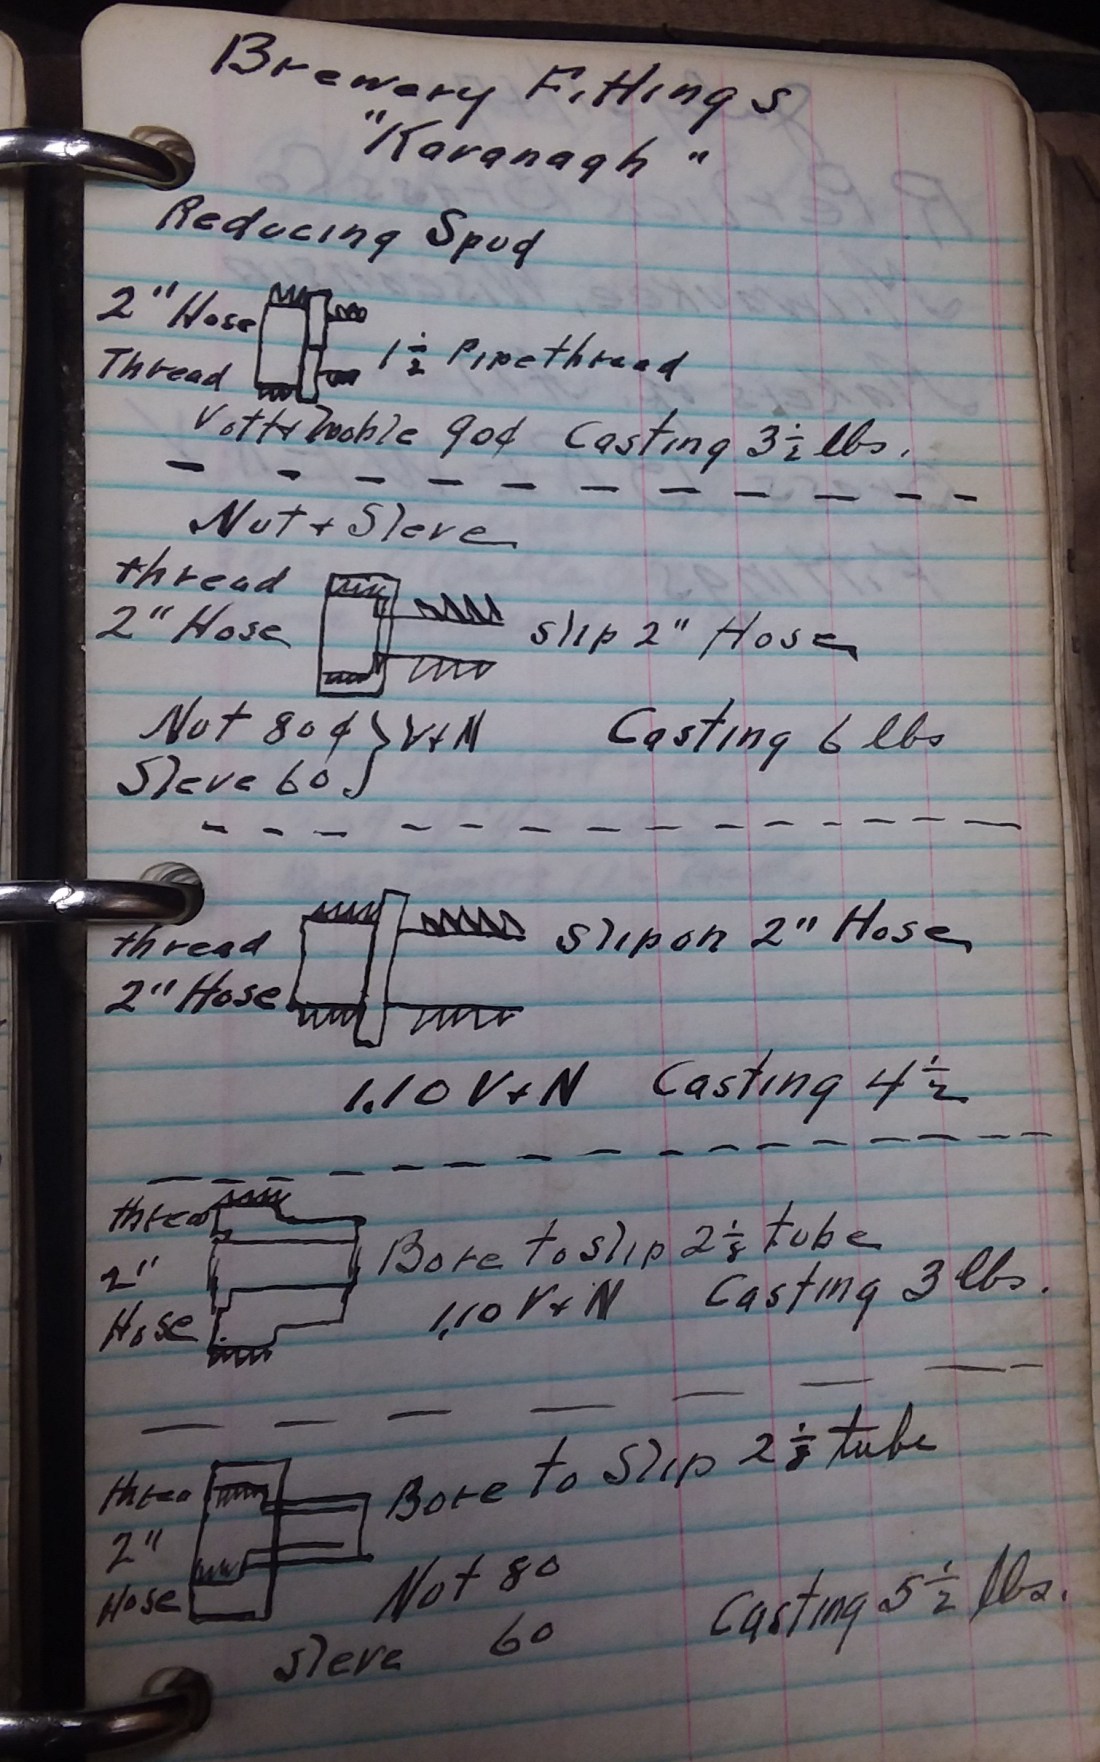 Brewery Fittings
"Kavanagh"
Reducing Spud
2" Hose
Thread
1 1/2 Pipe thread
90¢ Casting 3 1/2 lbs.
Nut + Sleve
thread
2" Hose
slip 2" Hose
Nut 80¢ } V+N
Sleve 60
Casting 6 lbs
thread
2" Hose
slip on 2" Hose
1.10 V+N Casting 4 1/2
thread
2"
Hose
Bore to slip 2 1/8 tube
1.10 V+N Casting 3 lbs.
threa
2"
Hose
Bore to Slip 2 1/8 tube
Nut 80
Sleve 60
Casting 5 1/2 lbs.